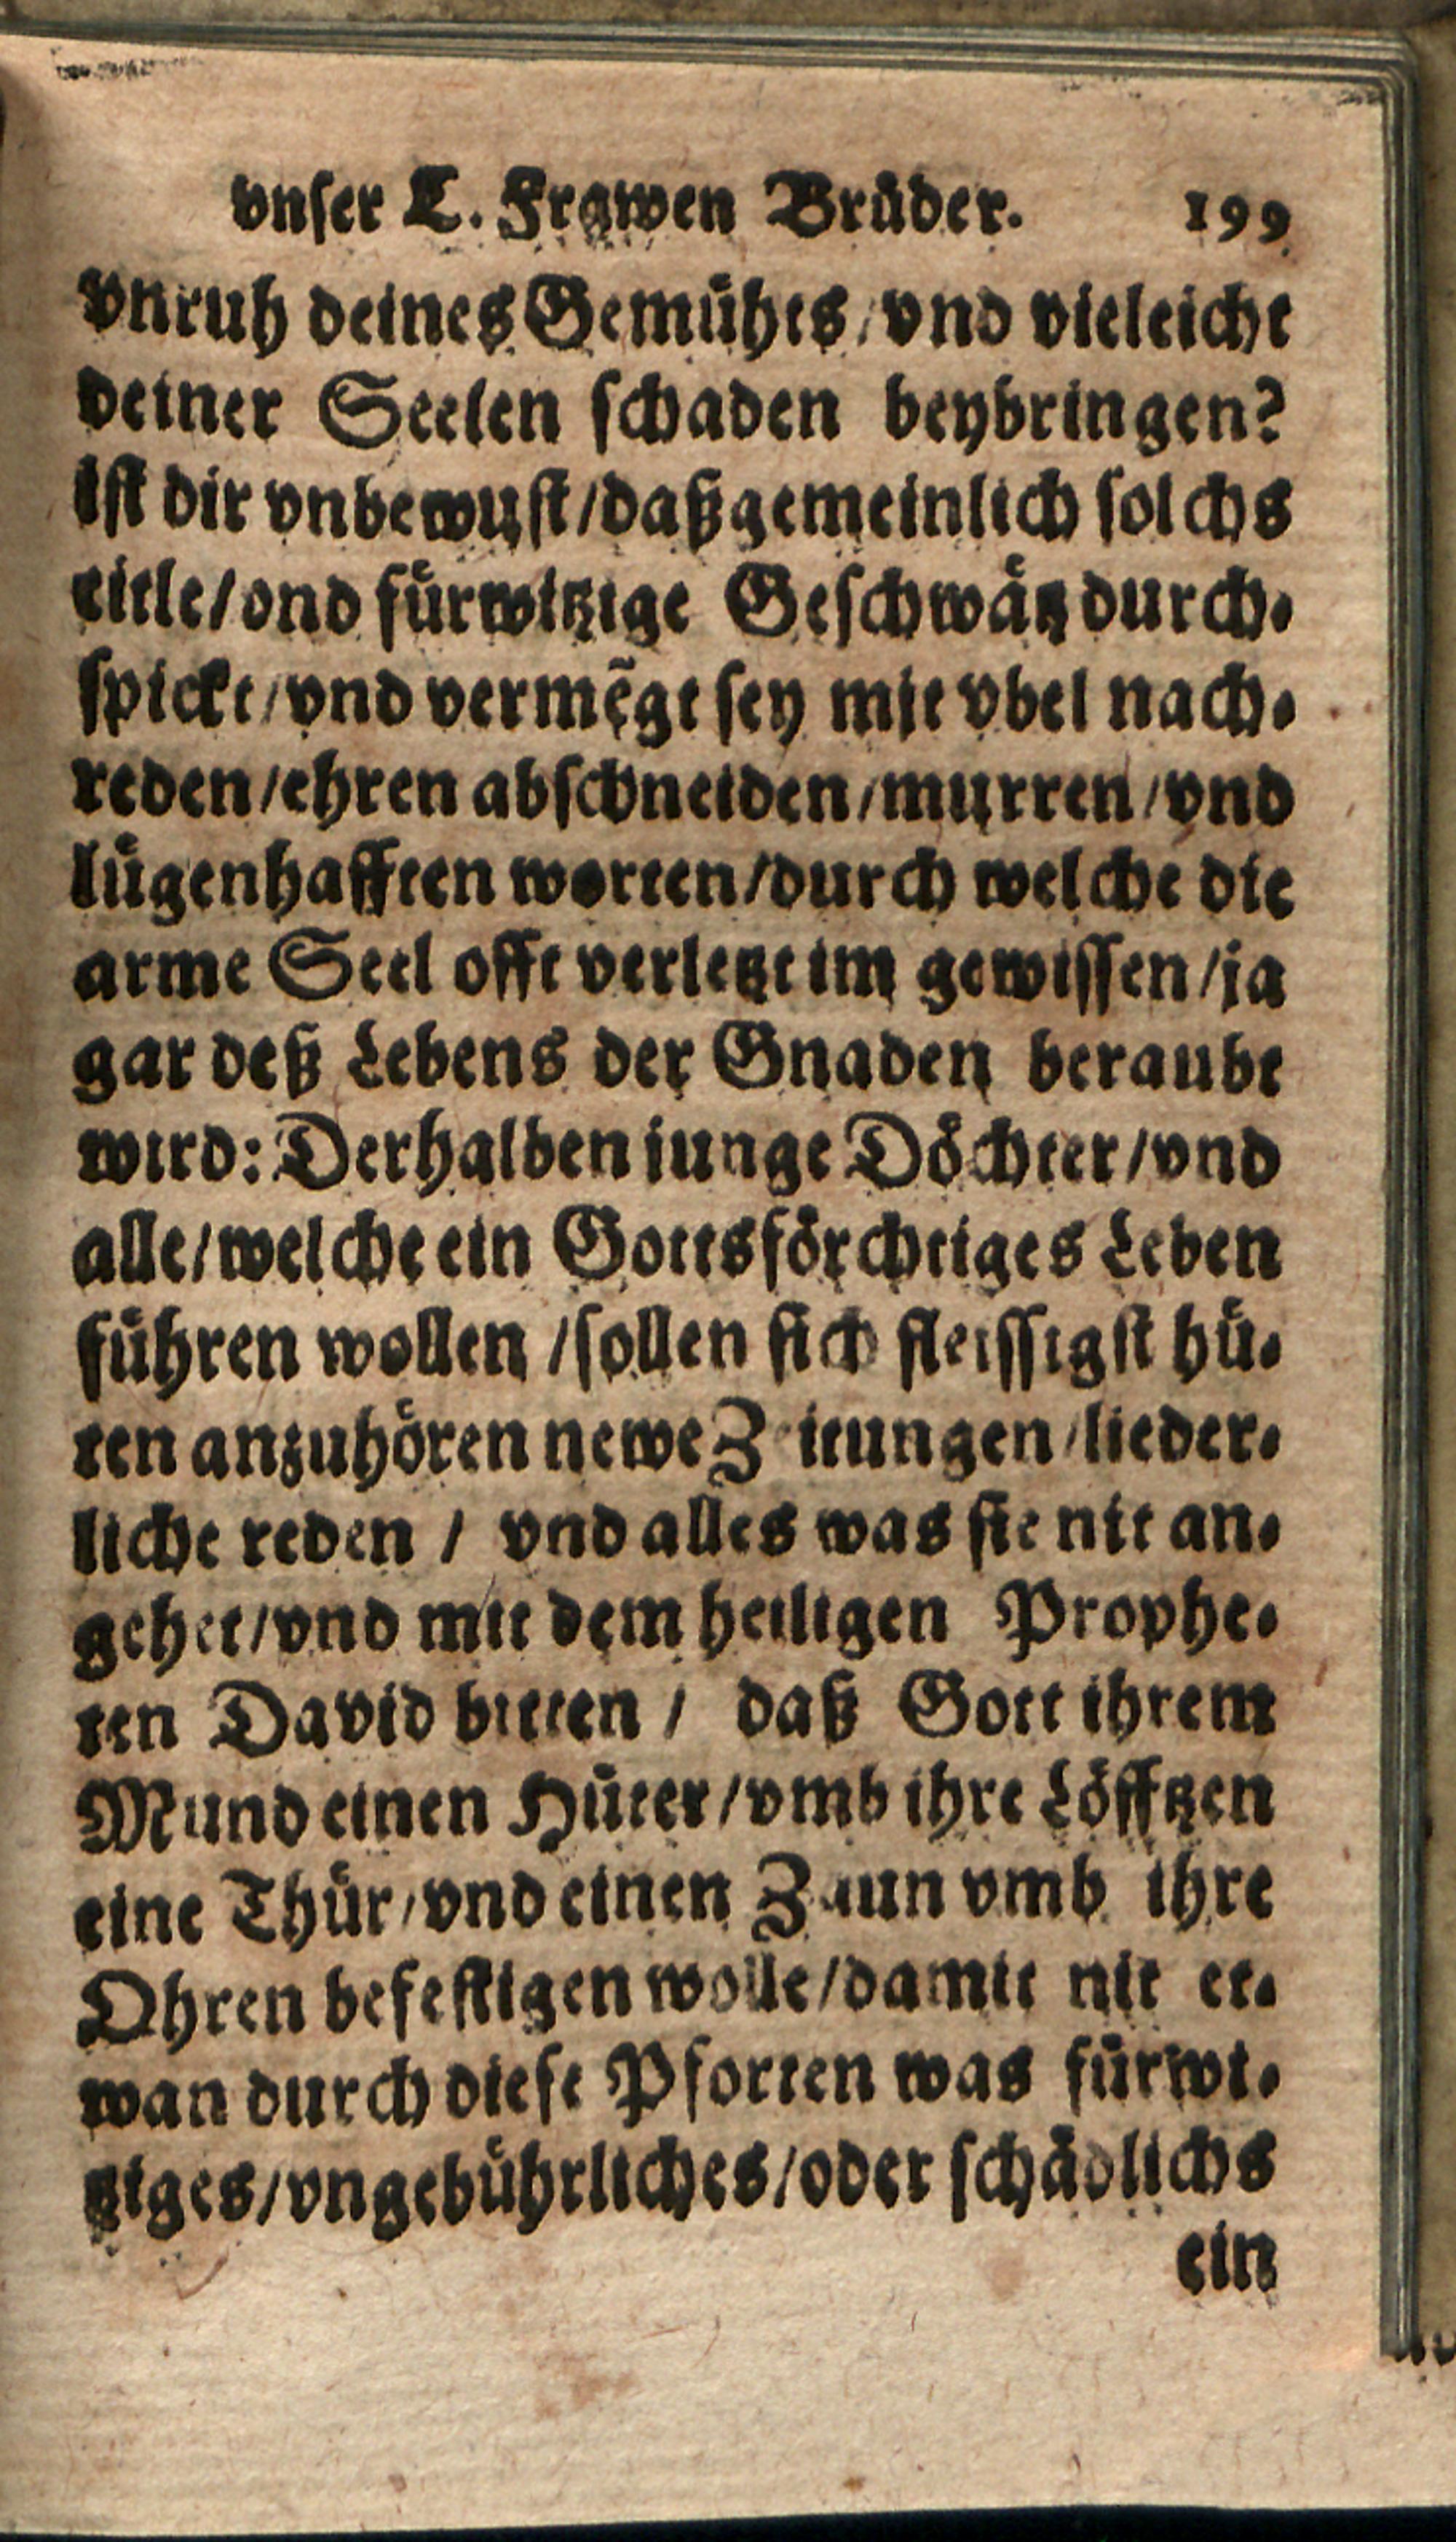 vnſer L. Frawen Brüder. 199
vnruh deines Gemühts / vnd vieleicht
deiner Seelen ſchaden beybringen?
iſt dir vnbewuſt / daß gemeinlich ſolchs
eitle / vnd fürwitzige Geſchwätz durch-
ſpickt / vnd vermẽgt ſey mit vbel nach-
reden / ehren abſchneiden / murren / vnd
lügenhafften worten / durch welche die
arme Seel offt verletzt im gewiſſen / ja
gar deß Lebens der Gnaden beraubt
wird: Derhalben junge Döchter / vnd
alle / welche ein Gottsförchtiges Leben
führen wollen / ſollen ſich fleiſſigſt hü-
ten anzuhören newe Zeitungen / lieder-
liche reden / vnd alles was ſie nit an-
gehet / vnd mit dem heiligen Prophe-
ten David bitten / daß Gott ihrem
Mund einen Hüter / vmb ihre Löfftzen
eine Thür / vnd einen Zaun vmb ihre
Ohren befeſtigen wolle / damit nit et-
wan durch dieſe Pforten was fürwi-
tziges / vngebührliches / oder ſchädlichs
ein